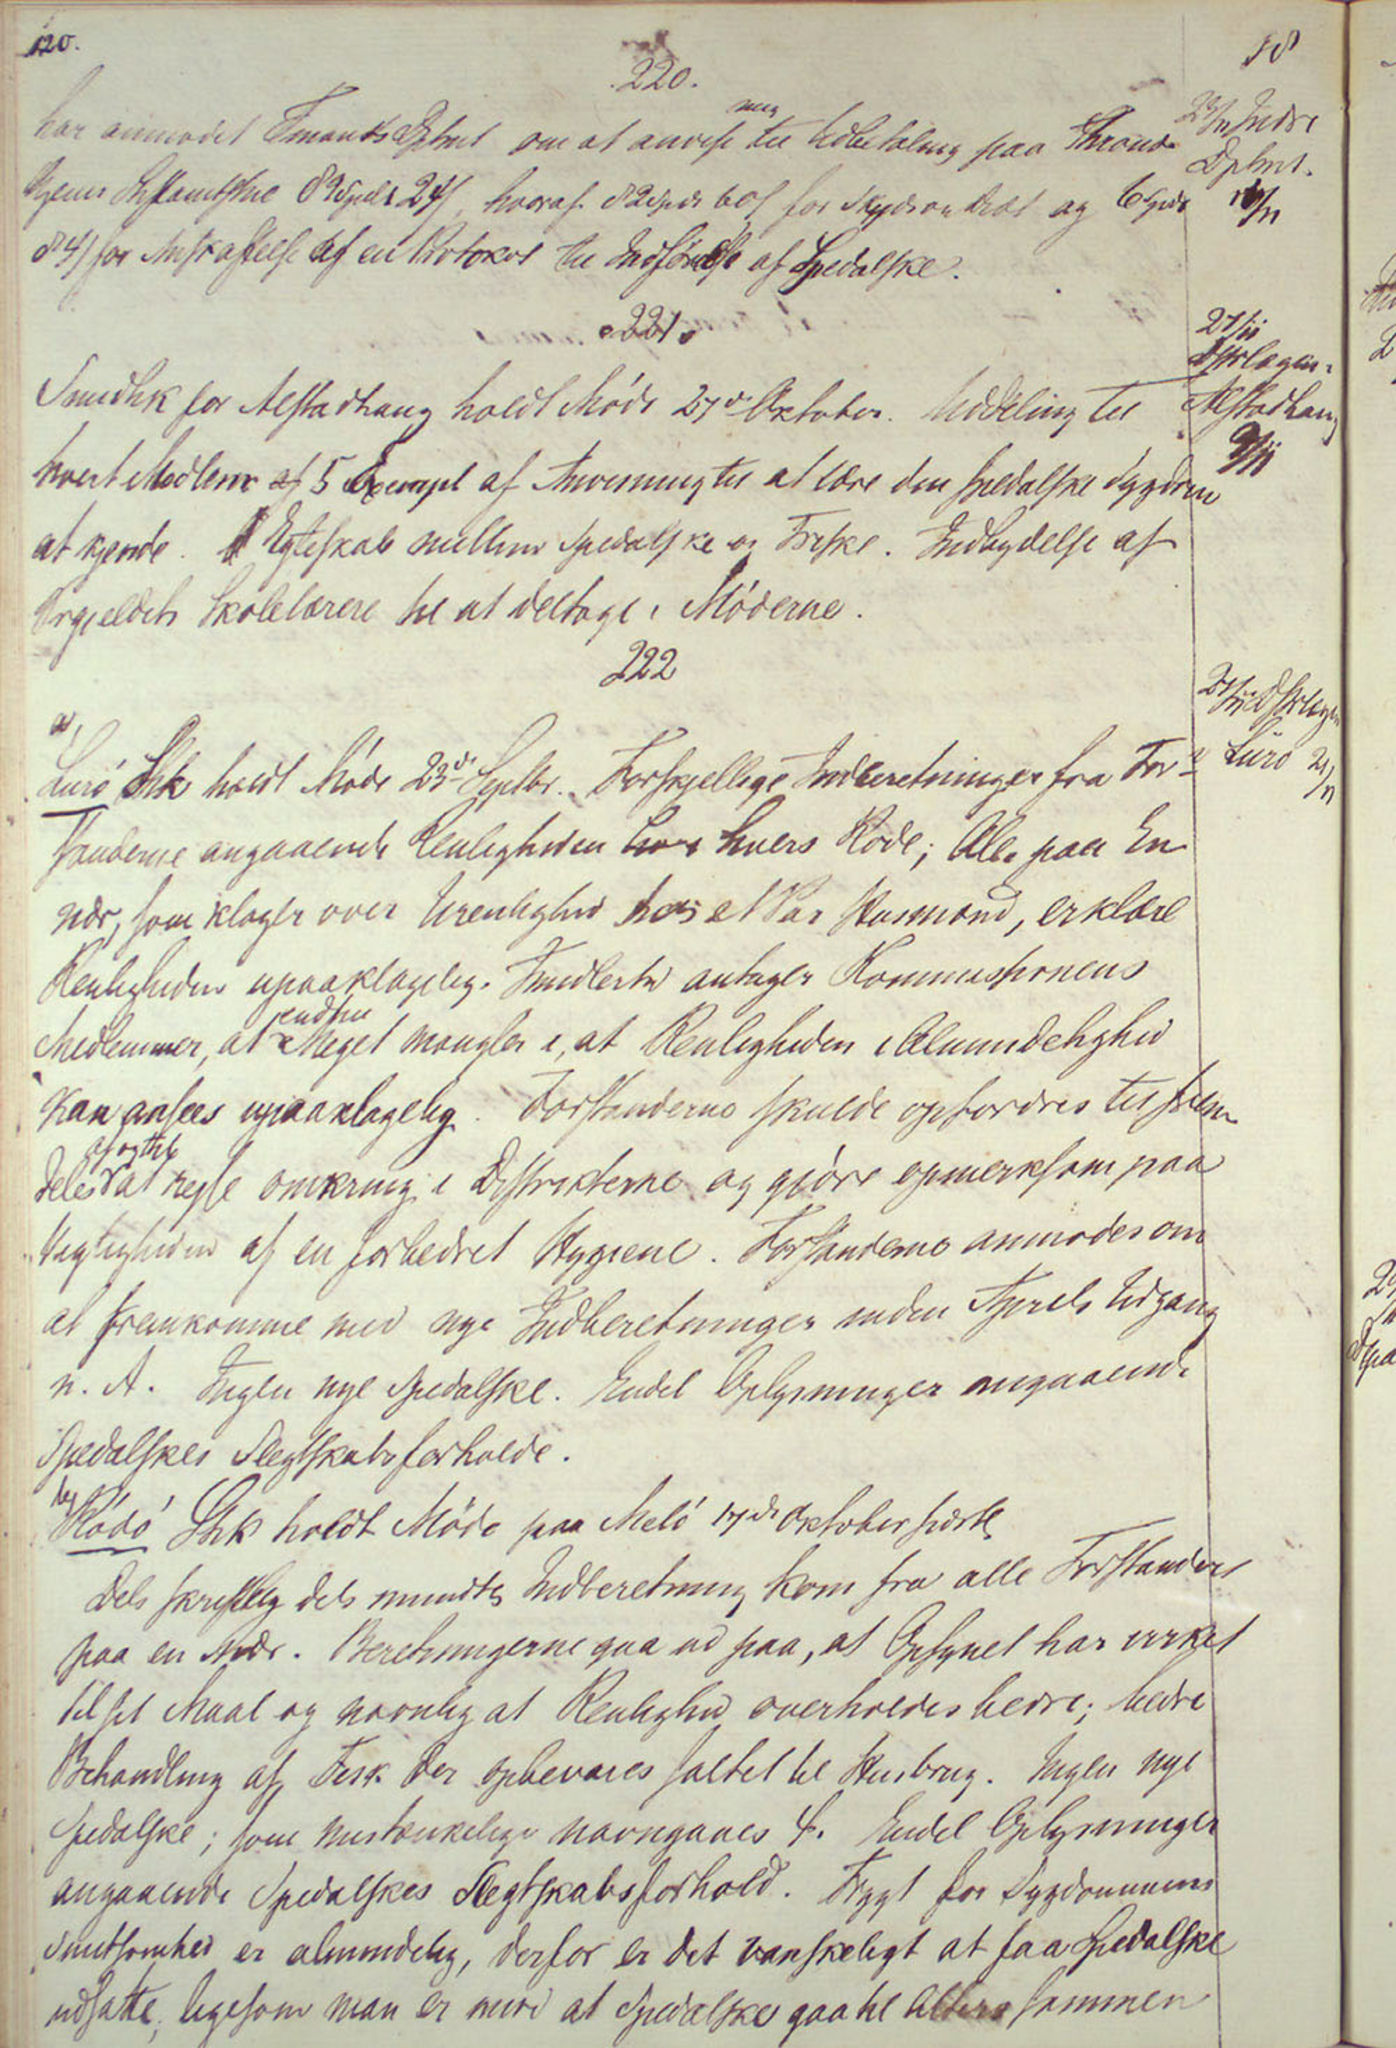 120.
18
220.
har anmodet Finants Dptmt om at anvise mig til Udbetaling paa Thrond-
hjems Stiftamtstue 89 Spd 24 s, hvoraf 82 Spd 60 s for Skyds og Diæt og 6 Spd
84 s for Anskaffelse af en Protokol til Indførelse af Spedalske.
23/11 Indre
Dptmt.
221.
Sundhk for Alstadhaug holdt Møde 27de Oktober. Uddeling til
hvert Medlem af 5 Exempl af Anvisning til at lære den spedalske Sygdom
at kjende. Egteskab mellem Spedalske og Friske. Indbydelse af
Prgjeldets Skolelærere til at deltage i Møderne.
27/11
Dstrlægen.
Alstadhaug
222
a,
Lurø Shk holdt Møde 23de Septbr. Forskjellige Indberetninger fra For-
standerne angaaende Renligheden hver i hvers Rode; Alle paa En
nær, som klager over Urenlighed hos et Par Husmænd, erklære
Renligheden upaaklagelig. Imidlertid antager Kommissionens
Medlemmer, at endnu Meget mangler i, at Renligheden i Almindelighed
kan ansees upaaklagelig. Forstanderne skulde opfordres til frem-
deles af og til at rejse omkring i Distrikterne og gjøre opmerksom paa
Vigtigheden af en forbedret Hygiene. Forstanderne anmodes om
at fremkomme med nye Indberetninger inden Aprils Udgang
n. A. Ingen nye Spedalske. Endel Oplysninger angaaende
Spedalskes Slegtskabsforholde.
27/11 Dstrlægen
Lurø 21/11
b,
Rødø Shk holdt Møde paa Melø 17de Oktober sidstl.
Dels skriftlig dels mundtlig Indberetning kom fra alle Forstandere
paa en nær. Beretningerne gaa ud paa, at Opsynet har virket
til sit Maal og navnlig at Renlighed overholdes bedre; bedre
Behandling af Fisk der opbevares saltet til Husbrug. Ingen nye
Spedalske; som mistænkelige navngaves 4. Endel Oplysninger
angaaende Spedalskes Slegtskabsforhold. Frygt for Sygdommens
Smitsomhed er almindelig, derfor er det vanskeligt at faa Spedalske
udsatte, ligesom man er imod at Spedalske gaa til Alters sammen